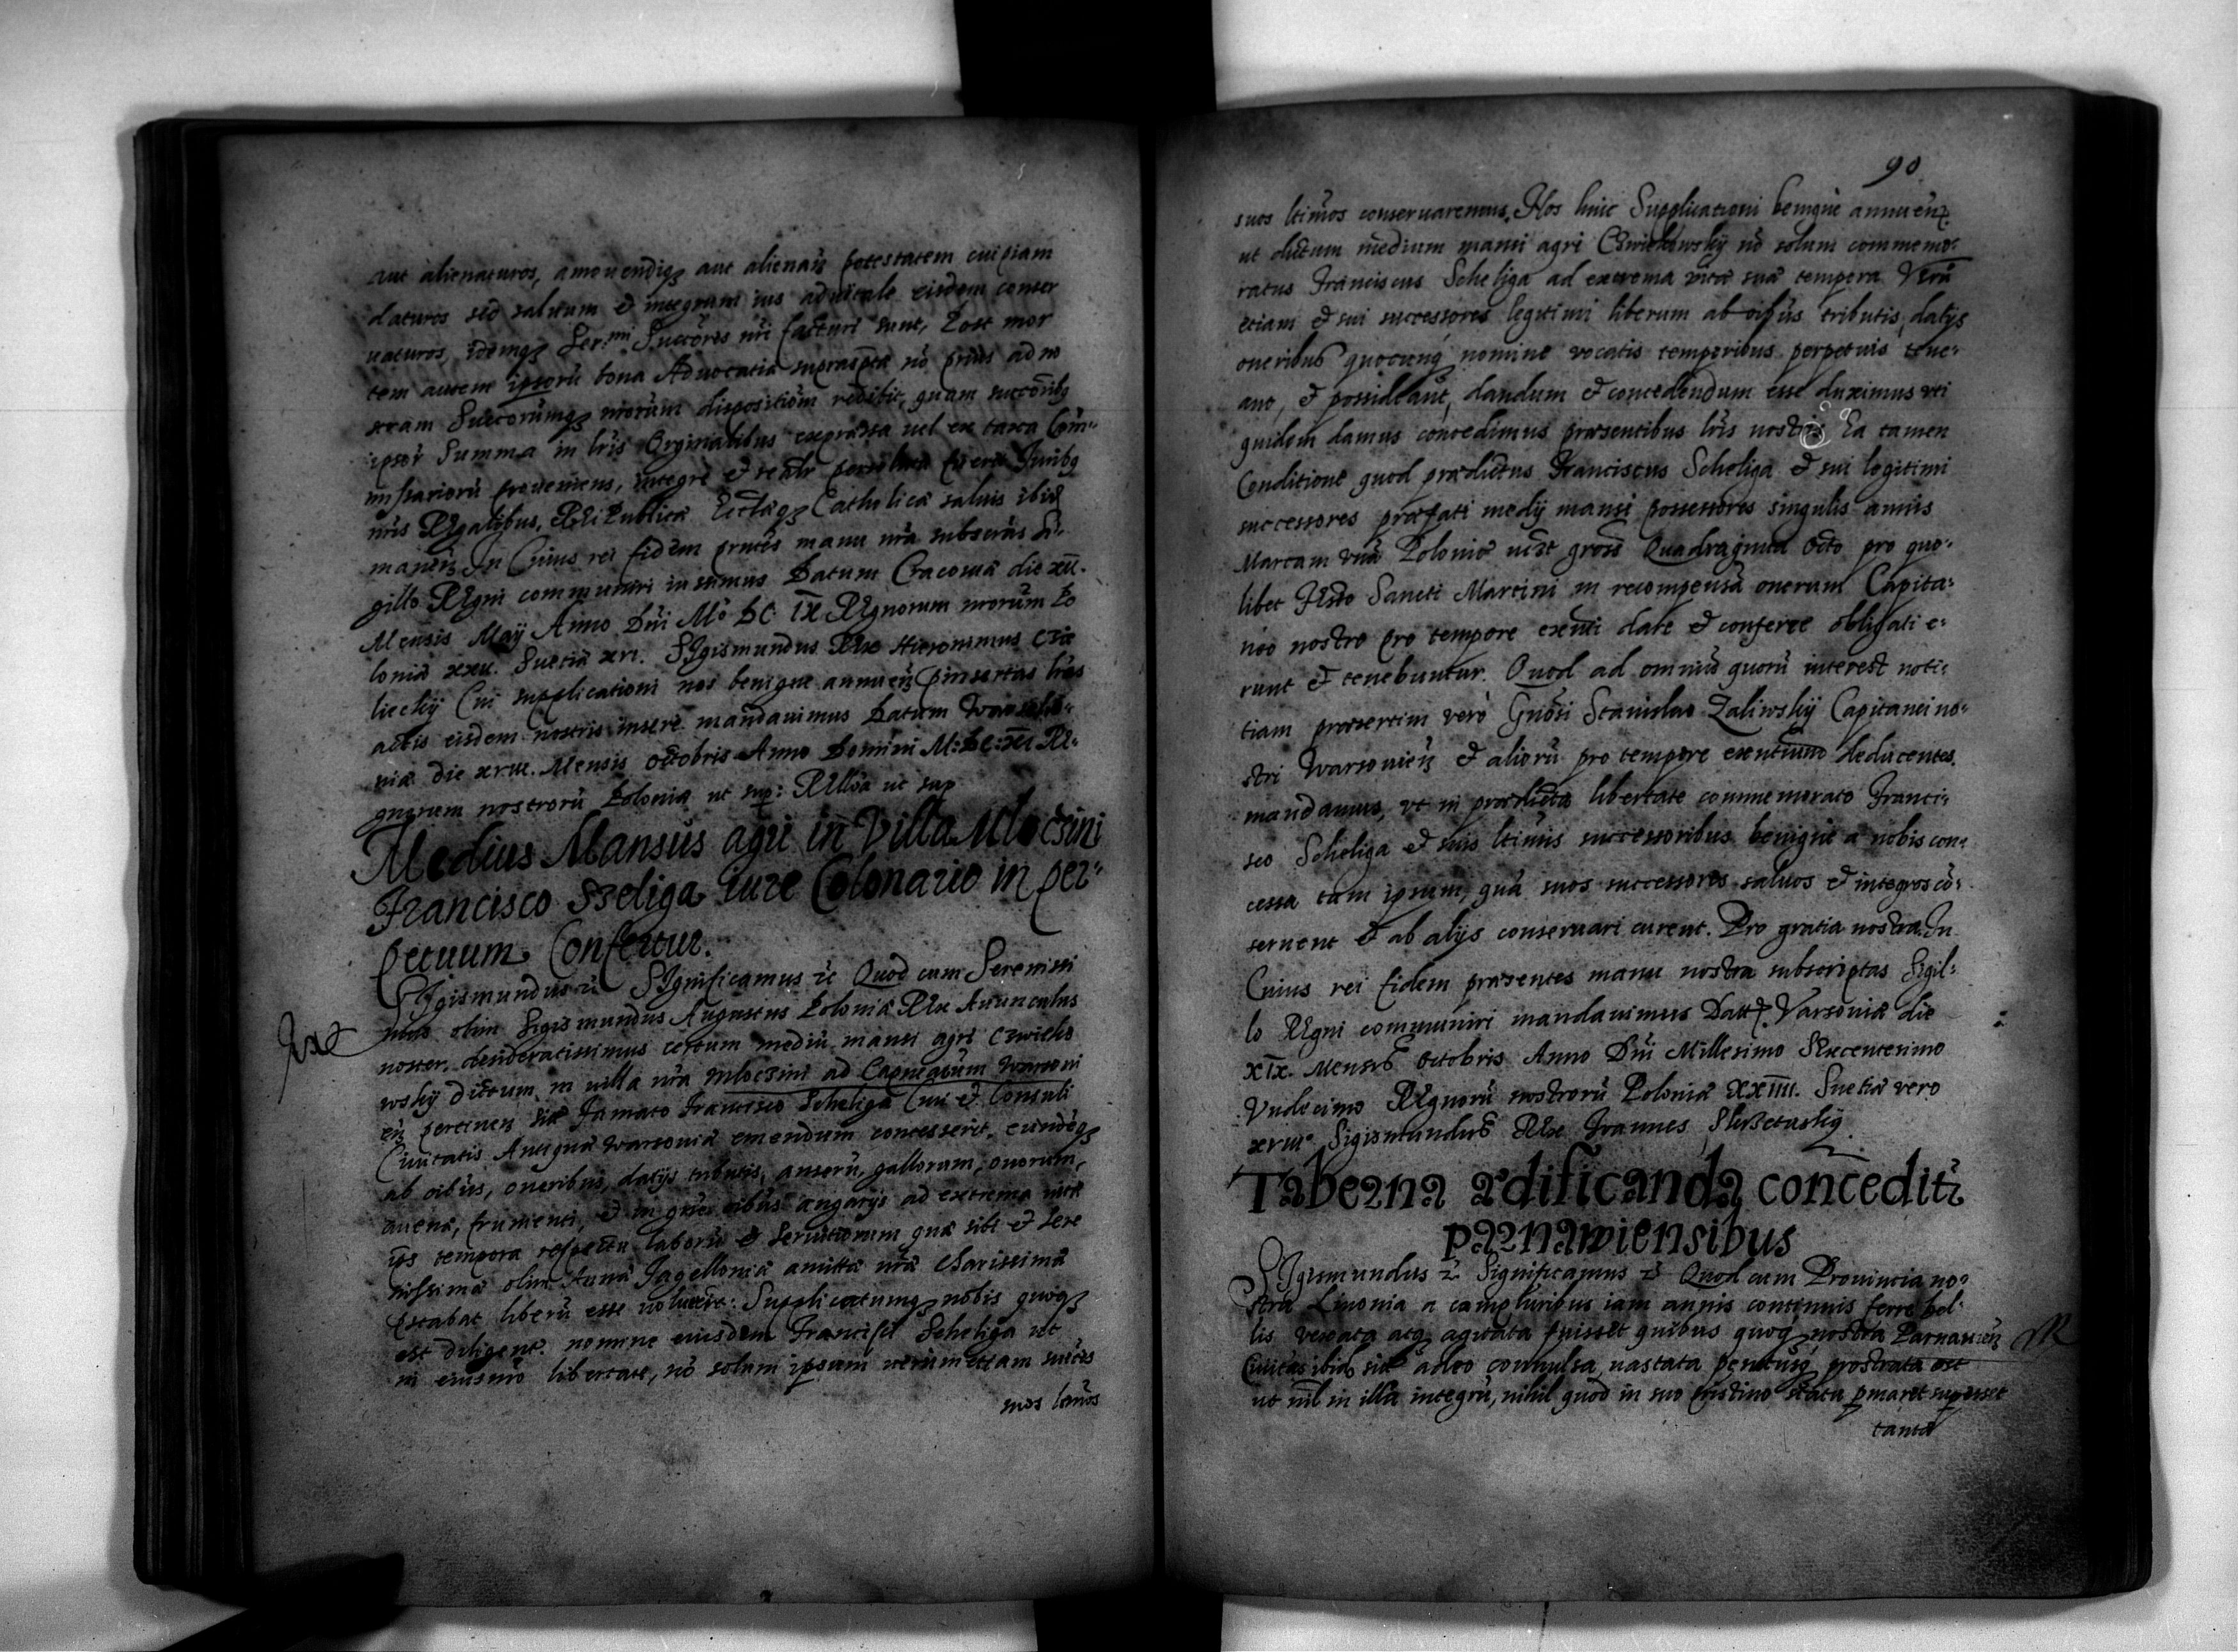 aut alienaturos, amouendiqȝ aut alienañ potestatem cuipiam
daturos sed saluum et integrum ius aduitale eisdem conser
uaturos, idemqȝ Ser.mi Succōres nri facturi sunt, Post mor
tem autem ipsorū bona Aduocatiæ suprascpta nō prius ad no
stram Succorumqȝ nrorum dispositiōm redibit, quam succōribȝ
ipsor Summa in lris Orginalibus expressa uel ex taxa Com-
missariorū proueniens, integre et realr persoluta fuerit Juribȝ
nris Regalibus, Rei Publicæ Ecclæqȝ Catholicæ saluis ibid
maneñ In Cuius rei fidem pntes manu nra subscras Si-
gillo Regni communiri iussimus Datum Cracouiæ die XII.
Mensis Maij Anno Dni Mo DC IX Regnorum nrorum Po
loniæ XXII. Suetiæ XVI. Sigismundus Rex Hieronimus Cie
lieckij Cui supplicationi nos benigne annueñ pinsertas lras
actis eisdem nostris insere mandauimus Datum Warscho-
uiæ die XVIII. Mensis Octobris Anno Domini M: DC: XI Re-
gnorum nostrorū Poloniæ ut sup: Rella ut sup
Medius Mansus agri in Villa Mloczini
Francisco Szeliga iure Colonario in per-
petuum Confertur.
SIgismundus etc Significamus etc Quod cum Serenissi
mus olim Sigismundus Augustus Poloniæ Rex Auunculus
noster, desideratissimus certum mediū mansi agri Czwiecko
wsky dictum in uilla nra Mloczini ad Capneatum Warsoui
eñ pertineñ siæ Famato Francisco Scheliga Ciui et Consuli
Ciuitatis Antiquæ Warsouiæ emendum concesserit, eundēqȝ
ab oibus, oneribus, datijs tributis, anserū, gallorum, ouorum,
auenæ, frumenti, et in gnre oibus angarijs ad extrema uitæ
ips tempora respectu laborū et seruitiorum quæ sibi et Sere
nissimæ olim Annæ Jagelloniæ amittæ nræ Charissimæ
præstabat liberū esse uoluerit: Supplicatumqȝ nobis quoqȝ
est diligent. nomine eiusdem Francisci Scheliga ut
in eiusmō libertate, nō solum ipsum uerumetiam succes
suos ltimos
90
suos ltimos conseruaremus, Nos huic Supplicationi benigne annueñ
ut dictum medium mansi agri Czwiekowsky nō solum commemo-
ratus Franciscus Scheliga ad extrema vitæ suæ tempora Verū
etiam et sui successores legitimi liberum ab oibus tributis, datijs
oneribus quocunq nomine vocatis temporibus perpetuis tene-
ant, et possideant, dandum et concedendum esse duximus vti
quidem damus concedimus præsentibus lris nostris Ea tamen
Conditione quod prædictus Franciscus Scheliga et sui legitimi
successores præfati medij mansi possessores singulis annis
Marcam unā Poloniæ uidt gross Quadraginta Octo pro quo-
libet Festo Sancti Martini in recompensā onerum Capita-
neo nostro pro tempore exnti dare et conferre obligati e-
runt et tenebuntur. Quod ad omniū quorū interest noti-
tiam præsertim vero Gnosi Stanislao Zaliwsky Capitanei no-
stri Warsouieñ et aliorū pro tempore exentium deducentes.
mandamus, vt in prædicta libertate commemorato Franci-
sco Scheliga et suis ltimis successoribus benigne a nobis con-
cessa tam ipsum, quā suos successores saluos et integros cō-
seruent et ab alijs conseruari curent. Pro gratia nostra. In
Cuius rei fidem præsentes manu nostra subscriptas Sigil-
lo Regni communiri mandauimus Datt Varsouiæ die
XIX. Mensis Octobris Anno Dni Millesimo Sexcentesimo
Vndecimo Regnorū nostrorū Poloniæ XXIIII. Suetiæ vero
XVIII. Sigismundus Rex Joannes Skrzetusky
Taberna ædificanda conceditr
parnawiensibus
SIgismundus etc Significamus etc Quod cum Prouincia no-
stra Liuonia a compluribus iam annis continuis ferre bel-
lis vexata atq agitata fuisset quibus quoq nostra Parnauieñ
Ciuitas ibid sita adeo conuulsa uastata penitusq prostrata est
ut nil in illa integrū, nihil quod in suo pristino statu pmaret supesset
tanta